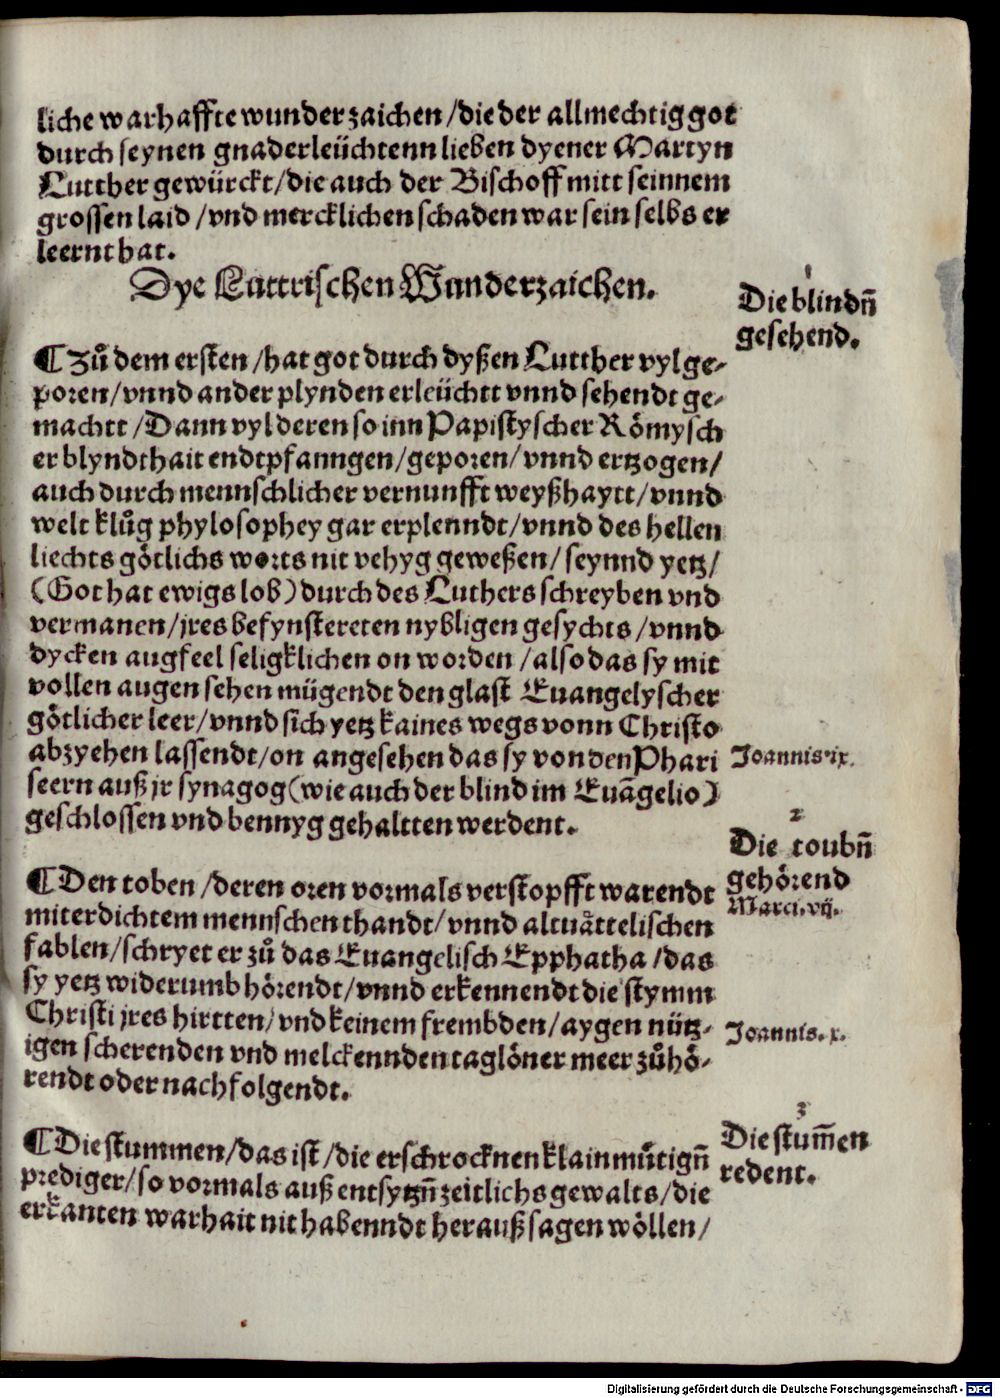 liche warhaffte wunder zaichen /die der allmechtig got
durch seynen gnaderleüchtenn lieben dyener Martyn
Lutther gewürckt/die auch der Bischoff mitt seinnem
grossen laid /vnd mercklichen schaden war sein selbs er
leernt hat.
Dye Luttrischen Wunderzaichen.
1
Die blindn̄
gesehend.
¶ Zů dem ersten /hat got durch dyßen Lutther vyl ge⸗
poren/vnnd ander plynden erleüchtt vnnd sehendt ge⸗
machtt /Dann vyl deren so inn Papistyscher Römysch
er blyndthait endtpfanngen/geporen/vnnd ertzogen/
auch durch mennschlicher vernunfft weyßhaytt/vnnd
welt klůg phylosophey gar erplenndt/vnnd des hellen
liechts götlichs worts nit vehyg geweßen/seynnd yetz/
(Got hat ewigs lob) durch des Luthers schreyben vnd
vermanen/jres befynstereten nybligen gesychts/vnnd
dycken augfeel seligklichen on worden /also das sy mit
vollen augen sehen mügendt den glast Euangelyscher
götlicher leer/vnnd sich yetz kaines wegs vonn Christo
abzyehen lassendt/on angesehen das sy von den Phari
seern auß jr synagog (wie auch der blind im Euāgelio)
geschlossen vnd bennyg gehaltten werdent.
Joannis.ix.
2
Die toubn̄
gehörend
Marci.vij.
¶ Den toben /deren oren vormals verstopfft warendt
mit erdichtem mennschen thandt/vnnd altuåttelischen
fablen/schryet er zů das Euangelisch Epphatha /das
sy yetz widerumb hörendt/vnnd erkennendt die stymm
Christi jres hirtten/vnd keinem frembden/aygen nütz⸗
igen scherenden vnd melckennden taglöner meer zůhö⸗
rendt oder nachfolgendt.
Joannis.x.
3
Die stum̄en
redent.
¶ Die stummen/das ist/die erschrocknen klainmůtign̄
prediger/so vormals auß entsytzn̄ zeitlichs gewalts/die
erkanten warhait nit habenndt herauß sagen wöllen/
Digitalisierung gefördert durch die Deutsche Forschungsgemeinschaft - DFG